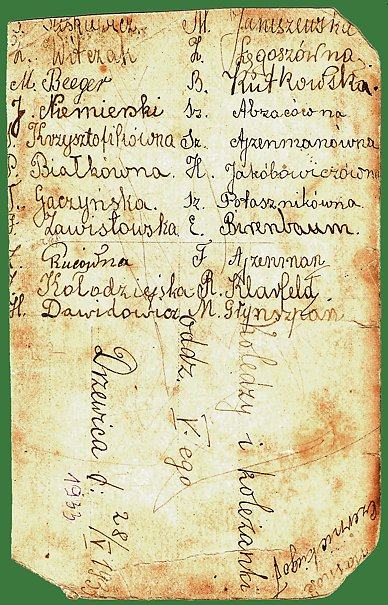 M. Janiszewska
Witczak Ł. Łęgoszówna
M. Beeger B. Rutkowska.
J. Niemierski Sz. Abzacówna
Krzysztofikówna Sz. Ajzenmanówna
P. Białkówna. H. Jakóbowiczówna
T. Gaczyńska. Sz. Potasznikówna
Zawistowska E. Birenbaum.
F. Ajzenman
Kołodziejska R. Klarfeld.
H. Dawidowicz M. Grynszpan
Koledzy i koleżanki
oddz. V.ego
Drzewica d. 28/IV 193
1933